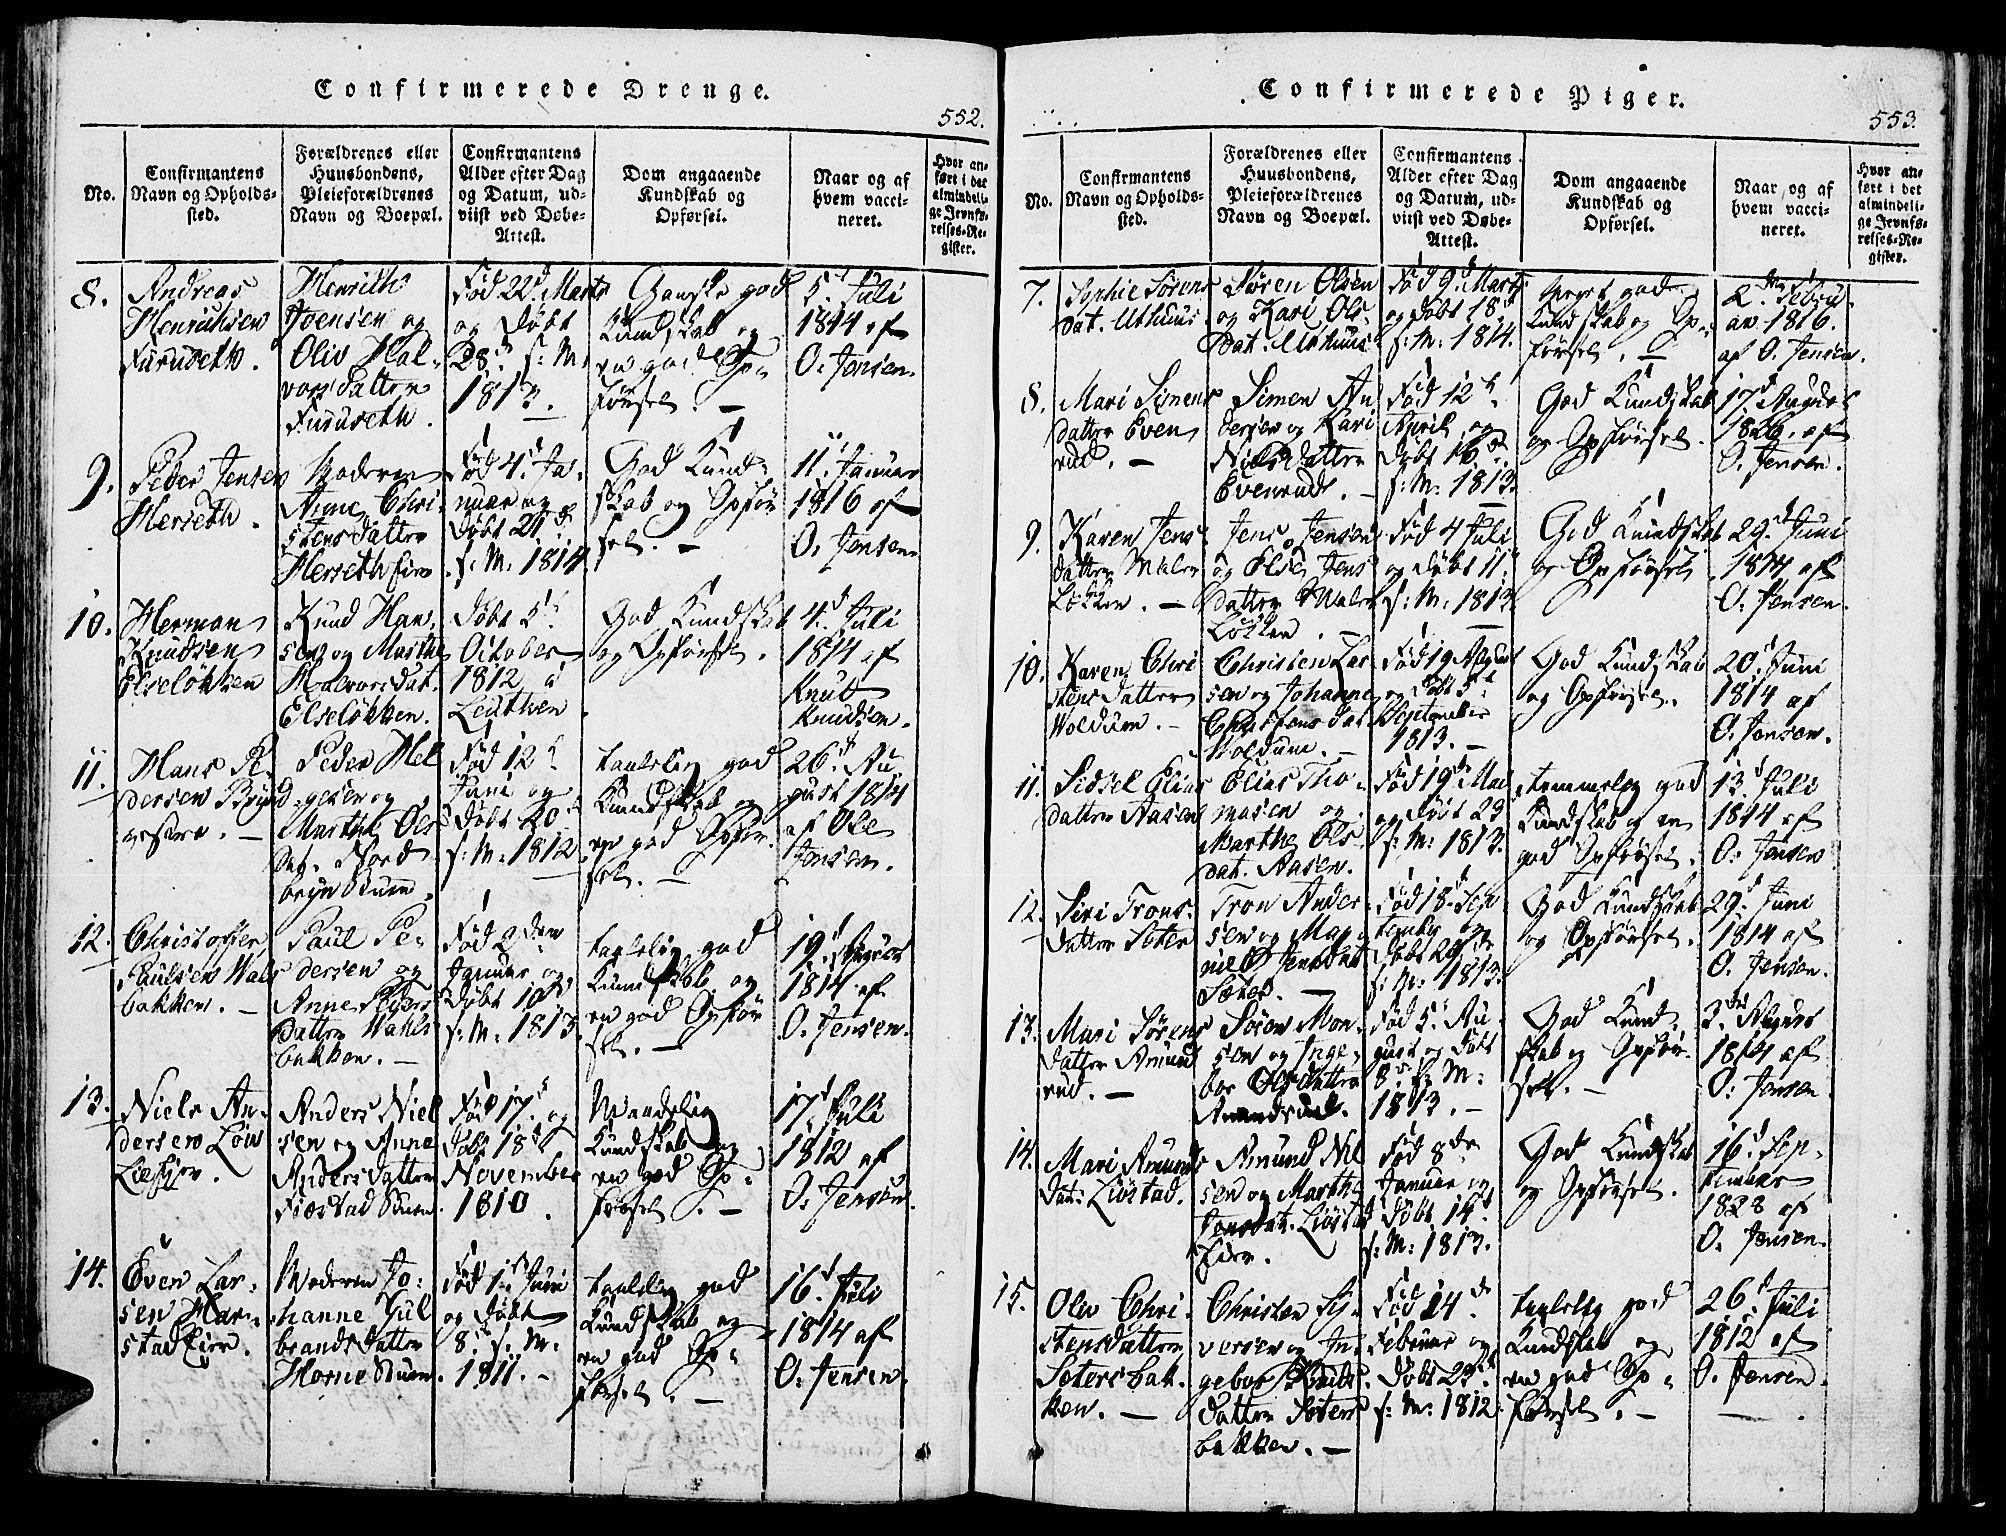 Confirmerede Drenge.
552.
No.
Confirmantens
Navn og Opholds-
sted.
Forældrenes eller
Huusbondens,
Pleieforældrenes
Navn og Boepæl.
Confirmantens
Alder efter Dag
og Datum, ud-
viist ved Døbe-
Attest.
Dom angaaende
Kundskab og
Opførsel.
Naar og af
hvem vacci-
neret.
Hvor an-
ført i det
almindeli-
ge Jevnfø-
relses-Re-
gister.
8.
Andreas
Henrichsen
Furuseth.
Henrich
Joensen og
Oliv Hal-
vorsdatter
Furuseth.
Fød 22d Marts
og døbt
28d s: M:
1813.
Ganske god
Kundskab og
en god Op-
førsel. —
5. Juli
1814 af
O: Jensen.
9.
Peder Jensen
Herseth.
Moderen
Anne Chri-
stensdatter
Herseth Eier
Fød 4d Ja-
nuar og
døbt 21de
s: M: 1814
God Kund-
skab og Opfør-
sel. —
11. Januar
1816 af
O. Jensen.
10.
Herman
Knudsen
Elseløkken
Knud Han-
sen og Marthe
Halvorsdat.
Elseløkken.
Døbt 5t
October
1812 i
Leuthen
God Kundskab
og Opførsel.
4d Juli
1814 af
Knut
Knudsen.
11.
Hans Pe-
dersen Brynd
Peder Hel
gesen og
Marthe Ols
Dat. Nord
bryn Stuen.
Fød 12t
Juni og
døbt 20de
s: M: 1812
taalelig god
Kundskab og
en god Opfør-
sel. —
26d Au-
gust 1814
af Ole
Jensen.
12.
Christoffer
Paulsen Wals
bakken. —
Paul Pe-
dersen og
Anne Peders
datter Wahls
bakken. —
Fød 2den
Januar og
døbt 10d
s: M: 1813
taalelig god
Kundskab og
en god Opfør
sel. —
19d August
1814 af
O. Jensen.
13.
Niels An-
dersen Løv
Lieseier.
Anders Niel
sen og Anne
Andersdatter
Fiæstad Stuen
Fød 17. og
døbt 18de
November
1810.
Maadelig
Kundskab og
en god Op-
førsel. —
17d Juli
1812 af
O. Jensen.
14.
Even Lar-
sen Har-
stadeier.
Moderen Jo-
hanne Gul
brandsdatter
Horne Stuen.
Fød 1. Juni
og døbt
8de s: M:
1811. —
taalelig god
Kundskab og
en god Op-
førsel. —
16d Juli
1814 af
O. Jensen.
Confirmerede Piger.
553.
No.
Confirmantens
Navn og Opholds-
sted.
Forældrenes eller
Huusbondens,
Pleieforældrenes
Navn og Boepæl.
Confirmantens
Alder efter Dag
og Datum, ud-
viist ved Døbe-
Attest.
Dom angaaende
Kundskab og
Opførsel.
Naar og af
hvem vacci-
neret.
Hvor an-
ført i det
almindeli-
ge Jevnfø-
relses-Re-
gister.
7.
Sophie Sørens
dat. Uthuus
Søren Olsen
og Kari Ols
Dat. Uthuus
Fød 9d Marts
og døbt 18d
s: M: 1814.
Meget god
Kundskab og Op-
førsel. —
2den Febru-
ar 1816.
af O. Jensen.
8.
Mari Simens
datter Even
rud. —
Simen An
dersen og Kari
Nielsdatter
Evenrud. —
Fød 12t
April og
døbt 16de
s: M: 1813.
God Kundskab
og Opførsel.
17d August
1826 af
O. Jensen.
9.
Karen Jens
datter Maler
Løkken. —
Jens Jensen
og Else Jens
datter Maler
Løkken. —
Fød 4 Juli
og døbt 11.
s: M: 1813.
God Kundskab
og Opførsel
29d Juni
1814 af
O. Jensen.
10.
Karen Chri
stensdatter
Woldum. —
Christen Lar
sen og Johanne
Christens dat.
Woldum. —
Fød 19 August
og døbt 5t
September
1813. —
God Kundskab
og Opførsel.
20d Juni
1814 af
O. Jensen.
11.
Sidsel Elias
datter Aasen
Elias Tho-
masen og
Marthe Ols-
dat. Aasen.
Fød 19de Mai
og døbt 23
s: M: 1813.
temmelig god
Kundskab og en
god Opførsel.
13. Juli
1814 af
O: Jensen
12.
Siri Trons-
datter Sæter
Tron Ander-
sen og Mag-
nild Jensdat
Sæter. —
Fød 18. Sep
tember og
døbt 26de
s: M: 1813.
God Kundskab
og Opførsel.
29d Juni
1814 af
O. Jensen.
13.
Mari Sørens
datter Amund
rud. —
Søren Mon-
sen og Inge-
bor Olsdatter
Amundsrud.
Fød 5. Au-
gust og døbt
8de s: M:
1813. —
God Kund-
skab og Opfør-
sel. —
3die August
1814 af
O: Jensen
14.
Mari Amunds
dat: Liøstad.
Amund Nil
sen og Marthe
Jensdat. Liøstad
Eier.
Fød 8de
Januar og
døbt 14d
s: M: 1813.
God Kundskab
og Opførsel.
16d Sep-
tember
1828 af
O. Jensen.
15.
Oliv Chri-
stensdatter
Sætersbak-
ken. —
Christen Sy-
versen og In-
gebor
datter Sæters
bakken. —
Fød 14de
Februar og
døbt 23de
s: M: 1812
taalelig god
Kundskab og
en god Op-
førsel. —
26d Juli
1812 af
O. Jensen.